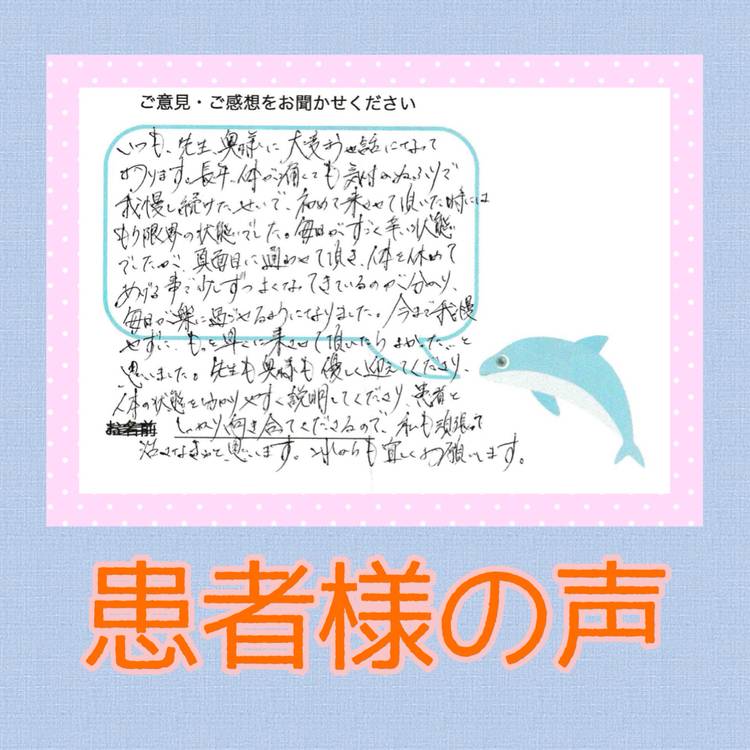 ご意見・ご感想をお聞かせください
いつも、先生、奥様に大変お世話になって
おります。長年、体が痛くても気付かぬふりで
我慢し続けたせいで、初めて来させて頂いた時には
もう限界の状態でした。毎日がすごく辛い状態
でしたが、真面目に通わせて頂き、体を休めて
あげる事で少しずつよくなってきているのが分かり、
毎日が楽に過ごせるようになりました。今まで我慢
せずに、もっと早くに来させて頂いたらよかった…と
思いました。先生も奥様も優しく迎えてくださり、
体の状態を分かりやすく説明してくださり、患者と
お名前 しっかり向き合ってくださるので、私も頑張って
治さなきゃと思います。これからも宜しくお願いします。
患者様の声